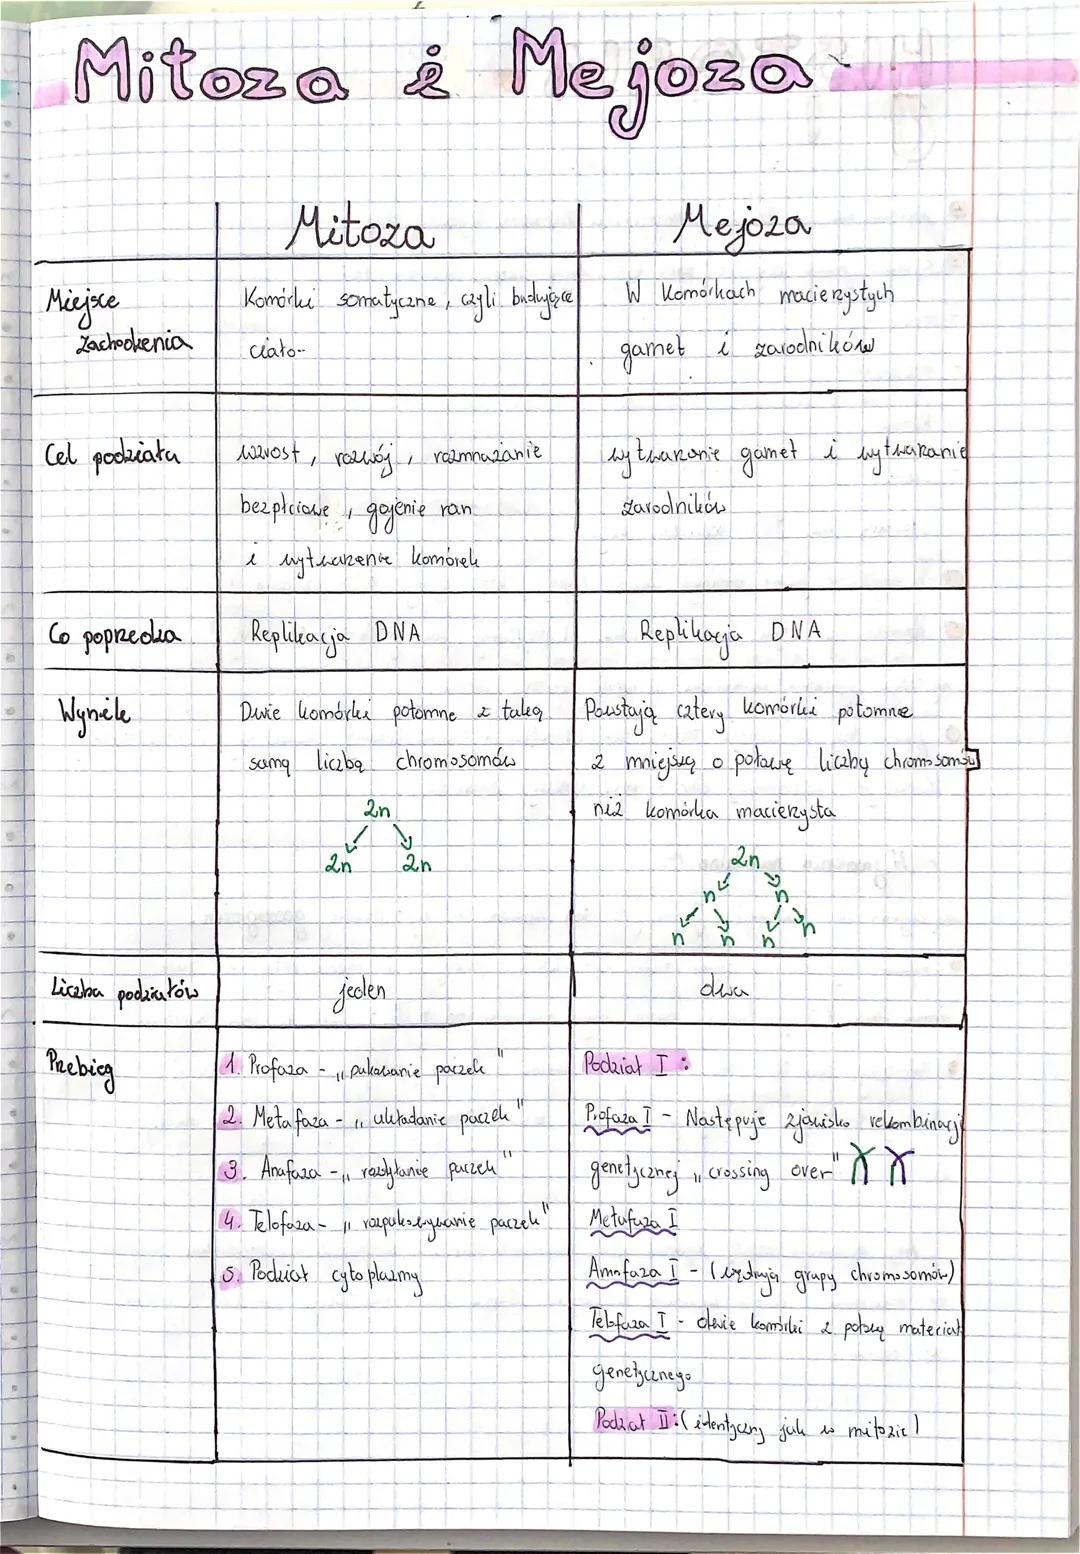 Mitoza i Mejoza
Mitoza
Mejoza
Miejsce
zachodzenia
Komórki somatyczne, czyli budujące
ciało.
W komórkach macierzystych
gamet i zarodników
Cel podziału
wzrost, rozwój, rozmnażanie
bezpłciowe, gojenie ran
i wytwarzenie komórek
wytwarzanie gamet i wytwarzanie
zarodników
Co poprzedza
Replikacja DNA
Replikacja DNA
Wynik
Dwie komórki potomne z taką
samą liczbą chromosomów
2n
2n 2n
Powstają cztery komórki potomne
z mniejszą o połowę liczby chromosomów
niż komórka macierzysta
2n
n n
n n n n
Liczba podziałów
jeden
dwa
Przebieg
1. Profaza - „pakowanie paczek"
2. Metafaza - „układanie paczek"
3. Anafaza - „rozsyłanie paczek"
4. Telofaza - „rozpakowywanie paczek"
5. Podział cytoplazmy
Podział I:
Profaza I - Następuje zjawisko rekombinacji
genetycznej „crossing over"
Metafaza I
Anafaza I - (wędrują grupy chromosomów)
Telofaza I - dwie komórki z połową materiału
genetycznego
Podział II: (identyczny jak w mitozie)